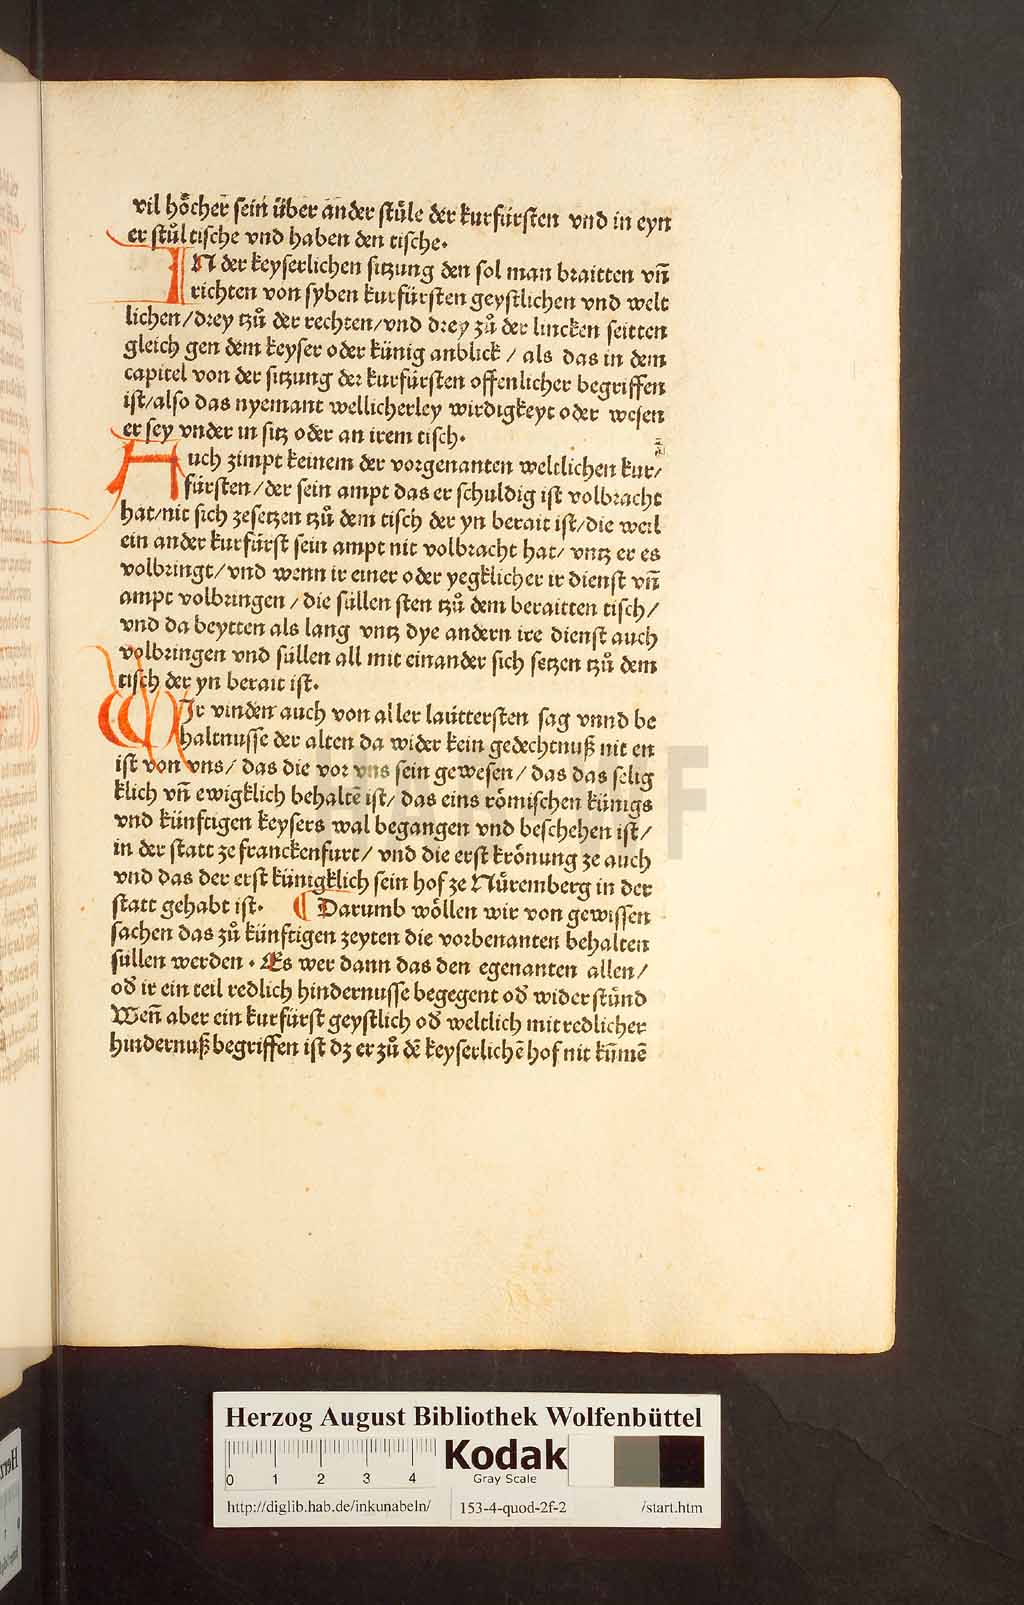 vil höcher sein über ander stüle der kurfürsten vnd in eyn
er stůl tische vnd haben den tische.
IN der keyserlichen sitzung den sol man braitten vn̄
richten von syben kurfürsten geystlichen vnd welt
lichen/drey tzů der rechten/vnd drey zů der lincken seitten
gleich gen dem keyser oder künig anblick / als das in dem
capitel von der sitzung der kurfürsten offenlicher begriffen
ist/also das nyemant wellicherley wirdigkeyt oder wesen
er sey vnder in sitz oder an irem tisch.
Auch zimpt keinem der vorgenanten weltlichen kur/
fürsten/der sein ampt das er schuldig ist volbracht
hat/nit sich zesetzen tzů dem tisch der yn berait ist/die weil
ein ander kurfürst sein ampt nit volbracht hat/ vntz er es
volbringt/vnd wenn ir einer oder yegklicher ir dienst vn̄
ampt volbringen/die süllen sten tzů dem beraitten tisch/
vnd da beytten als lang vntz dye andern ire dienst auch
volbringen vnd süllen all mit einander sich setzen tzů dem
tisch der yn berait ist.
WIr vinden auch von aller lauttersten sag vnnd be
haltnusse der alten da wider kein gedechtnuß nit en
ist von vns/ das die vor vns sein gewesen/ das das selig
klich vn̄ ewigklich behaltē ist/ das eins römischen künigs
vnd künftigen keysers wal begangen vnd beschehen ist/
in der statt ze franckenfurt/ vnd die erst krönung ze auch
vnd das der erst künigklich sein hof ze Nüremberg in der
statt gehabt ist. ¶ Darumb wöllen wir von gewissen
sachen das zů künftigen zeyten die vorbenanten behalten
süllen werden. Es wer dann das den egenanten allen/
od̄ ir ein teil redlich hindernusse begegent od̄ wider stünd
Wen̄ aber ein kurfürst geystlich od̄ weltlich mit redlicher
hindernuß begriffen ist dz er zů dē keyserlichē hof nit kūmē
HAB WF
Herzog August Bibliothek Wolfenbüttel
0 1 2 3 4
Kodak
Gray Scale
http://diglib.hab.de/inkunabeln/ 153-4-quod-2f-2 /start.htm